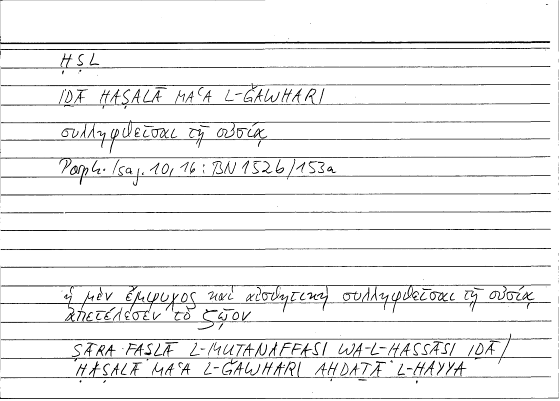 ḤṢL
IḎĀ ḤAṢALĀ MAʿA L-ǦAWHARI
συλληφθεῖσαι τῇ οὐσίᾳ
Porph. Isag. 10, 16 : BN 152b/153a
ἡ μὲν ἔμψυχος καὶ αἰσθητικὴ συλληφθεῖσαι τῇ οὐσίᾳ
ἀπετέλεσεν τὸ ζῷον
ṢĀRA FAṢLĀ L-MUTANAFFASI WA-L-ḤASSĀSI IḎĀ/
ḤAṢALĀ MAʿA L-ǦAWHARI AḤDAṮĀ L-ḤAYYA